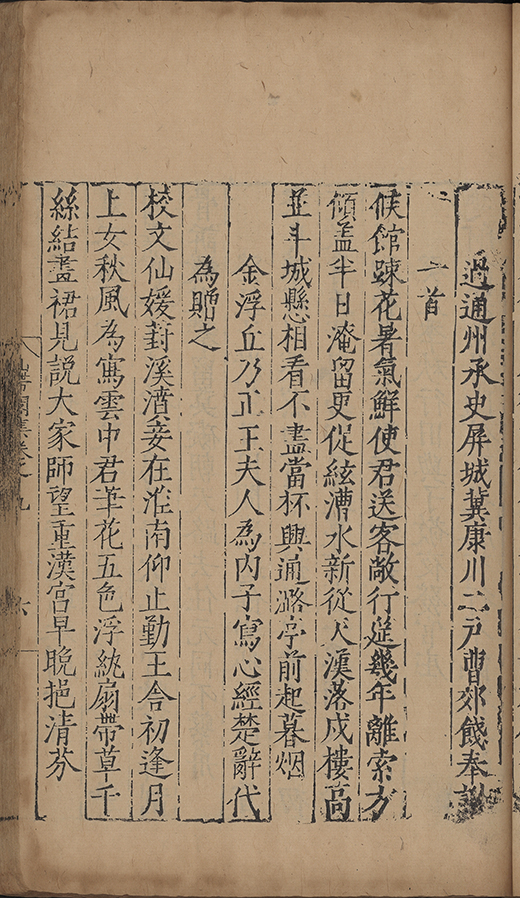 過通州承史屏城冀康川二戸曹郊餞奉謝
一首
候館踈花暑氣鮮使君送客敞行筵幾年離索方
傾盖半日淹留更促絃漕水新從天漢落戍樓高
並斗城懸相看不盡當杯興通潞亭前起暮烟
金浮丘乃正王夫人為内子寫心經楚辭代
為贈之
校文仙媛葑溪濆妾在淮南仰止勤王舍初逢月
上女秋風為寫雲中君筆花五色浮紈扇帶草千
絲結畫裙見説大家師望重漢宮早晚挹清芬
集卷之九
六